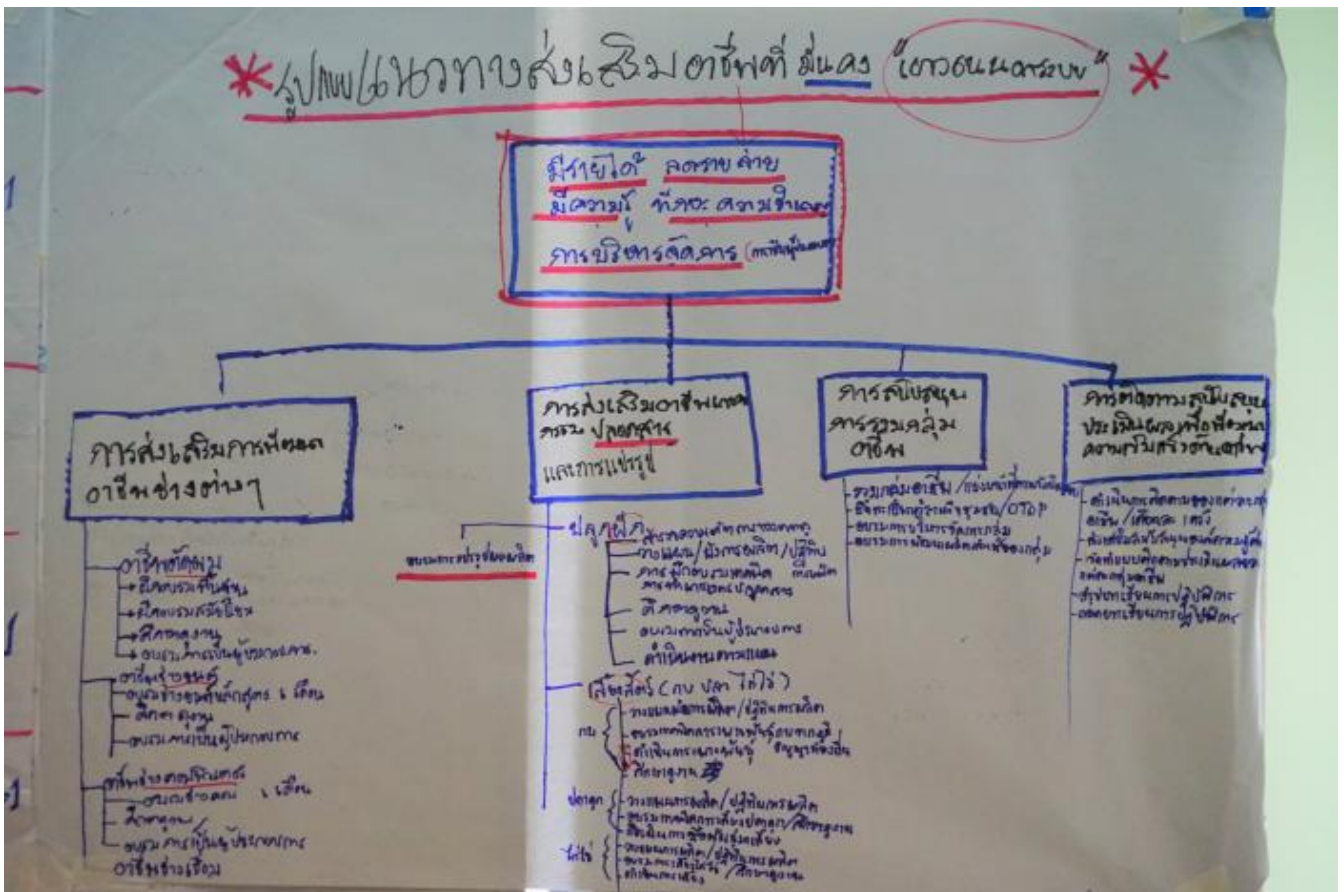 รูปแบบแนวทางส่งเสริมอาชีพที่ มั่นคง "เยาวชนนอกระบบ"
มีรายได้ ลดรายจ่าย
มีความรู้ ทักษะ ความชำนาญ
การบริหารจัดการ
การส่งเสริมการพัฒนา
อาชีพช่างต่างๆ
อาชีพตัดผม
ฝึกอบรมพื้นฐาน
ฝึกอบรมสมัยนิยม
ศึกษาดูงาน
อบรมการเป็นผู้ประกอบการ
อาชีพช่างยนต์
อบรมช่างยนต์หลักสูตร 6 เดือน
ศึกษาดูงาน
อบรมการเป็นผู้ประกอบการ
อาชีพช่างคอมพิวเตอร์
อบรมช่างคอม 6 เดือน
ศึกษาดูงาน
อบรมการเป็นผู้ประกอบการ
อาชีพช่างเชื่อม
การส่งเสริมอาชีพเกษตร
กรรม ปลอดสาร
และการแปรรูป
อบรมการแปรรูปผลผลิต
ปลูกผัก
วางแผน/ผังการผลิต/ปฏิทิน
การฝึกอบรมเทคนิค
ศึกษาดูงาน
อบรมการเป็นผู้ประกอบการ
ดำเนินงานตามแผน
เลี้ยงสัตว์ (กบ ปลา ไก่ไข่)
กบ
วางแผนการผลิต/ปฏิทินการผลิต
อบรมเทคนิคการเพาะพันธุ์
ดำเนินการเพาะพันธุ์
ศึกษาดูงาน
ปลาดุก
วางแผนการผลิต/ปฏิทินการผลิต
อบรมเทคนิคการเลี้ยงปลาดุก/ศึกษาดูงาน
ไก่ไข่
วางแผนการผลิต/ปฏิทินการผลิต
อบรมการเลี้ยงไก่ไข่/ศึกษาดูงาน
ดำเนินการเลี้ยง
การสนับสนุน
การรวมกลุ่ม
อาชีพ
รวมกลุ่มอาชีพ/แบ่งหน้าที่
OTOP
อบรมการบริหารจัดการกลุ่ม
อบรมการพัฒนาผลิตภัณฑ์ของกลุ่ม
การติดตามสนับสนุน
ประเมินผลเพื่อพัฒนา
ดำเนินการติดตามของแต่ละกลุ่ม
อาชีพ/เดือนละ 1 ครั้ง
สรุปบทเรียนการปฏิบัติการ
ถอดบทเรียนการปฏิบัติการ